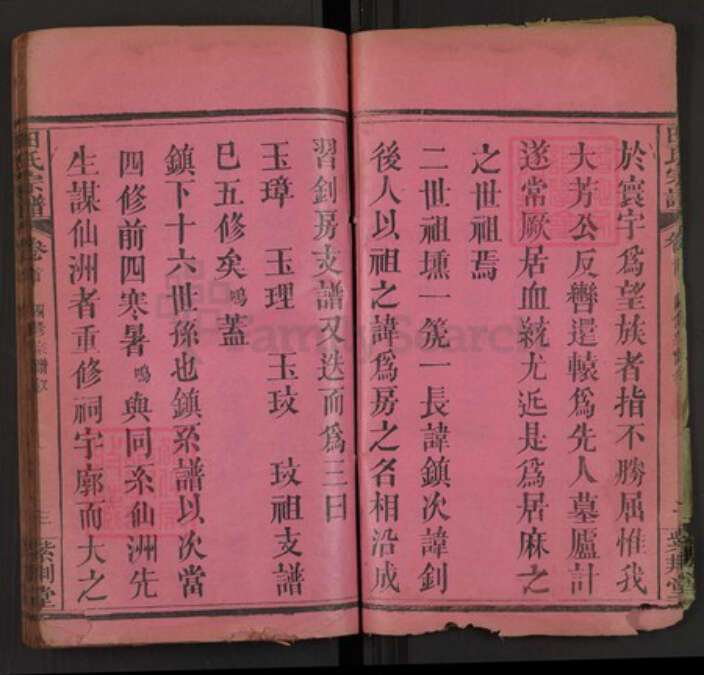 於寰宇爲望族者指不勝屈惟我
大芳公反轡還轅爲先人墓廬計
遂常厥居血統尤近是爲居麻之
之世祖焉
二世祖壎一筅一長諱鎮次諱釗
後人以祖之諱爲房之名相沿成
習釗房支譜又迭而爲三曰
玉璋 玉理 玉玟 玟祖支譜
巳五修矣鳴蓋
鎮下十六世孫也鎮系譜以次當
四修前四寒暑鳴與同系仙洲先
生謀仙洲者重修祠宇廓而大之
田氏宗譜 卷首 三 紫荆堂
FamilySearch